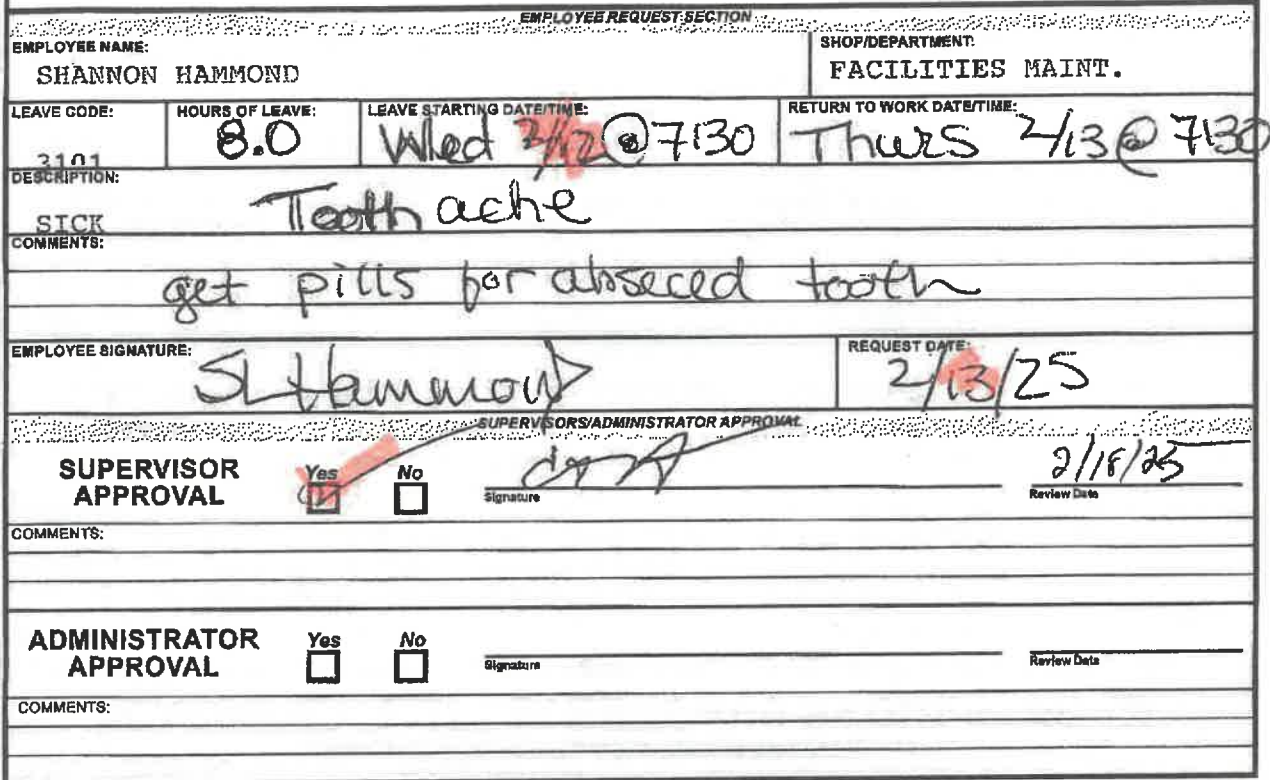 EMPLOYEE REQUEST SECTION
EMPLOYEE NAME: SHOP/DEPARTMENT:
SHANNON HAMMOND FACILITIES MAINT.
LEAVE CODE: HOURS OF LEAVE: LEAVE STARTING DATE/TIME: RETURN TO WORK DATE/TIME:
3101 8.0 Wed 2/12 @ 7:30 Thurs 2/13 @ 7:30
DESCRIPTION:
SICK Tooth ache
COMMENTS:
get pills for abseced tooth
EMPLOYEE SIGNATURE: REQUEST DATE:
SL Hammond 2/13/25
SUPERVISORS/ADMINISTRATOR APPROVAL
SUPERVISOR APPROVAL Yes No 2/18/25
Signature Review Date
COMMENTS:
ADMINISTRATOR APPROVAL Yes No
Signature Review Date
COMMENTS: